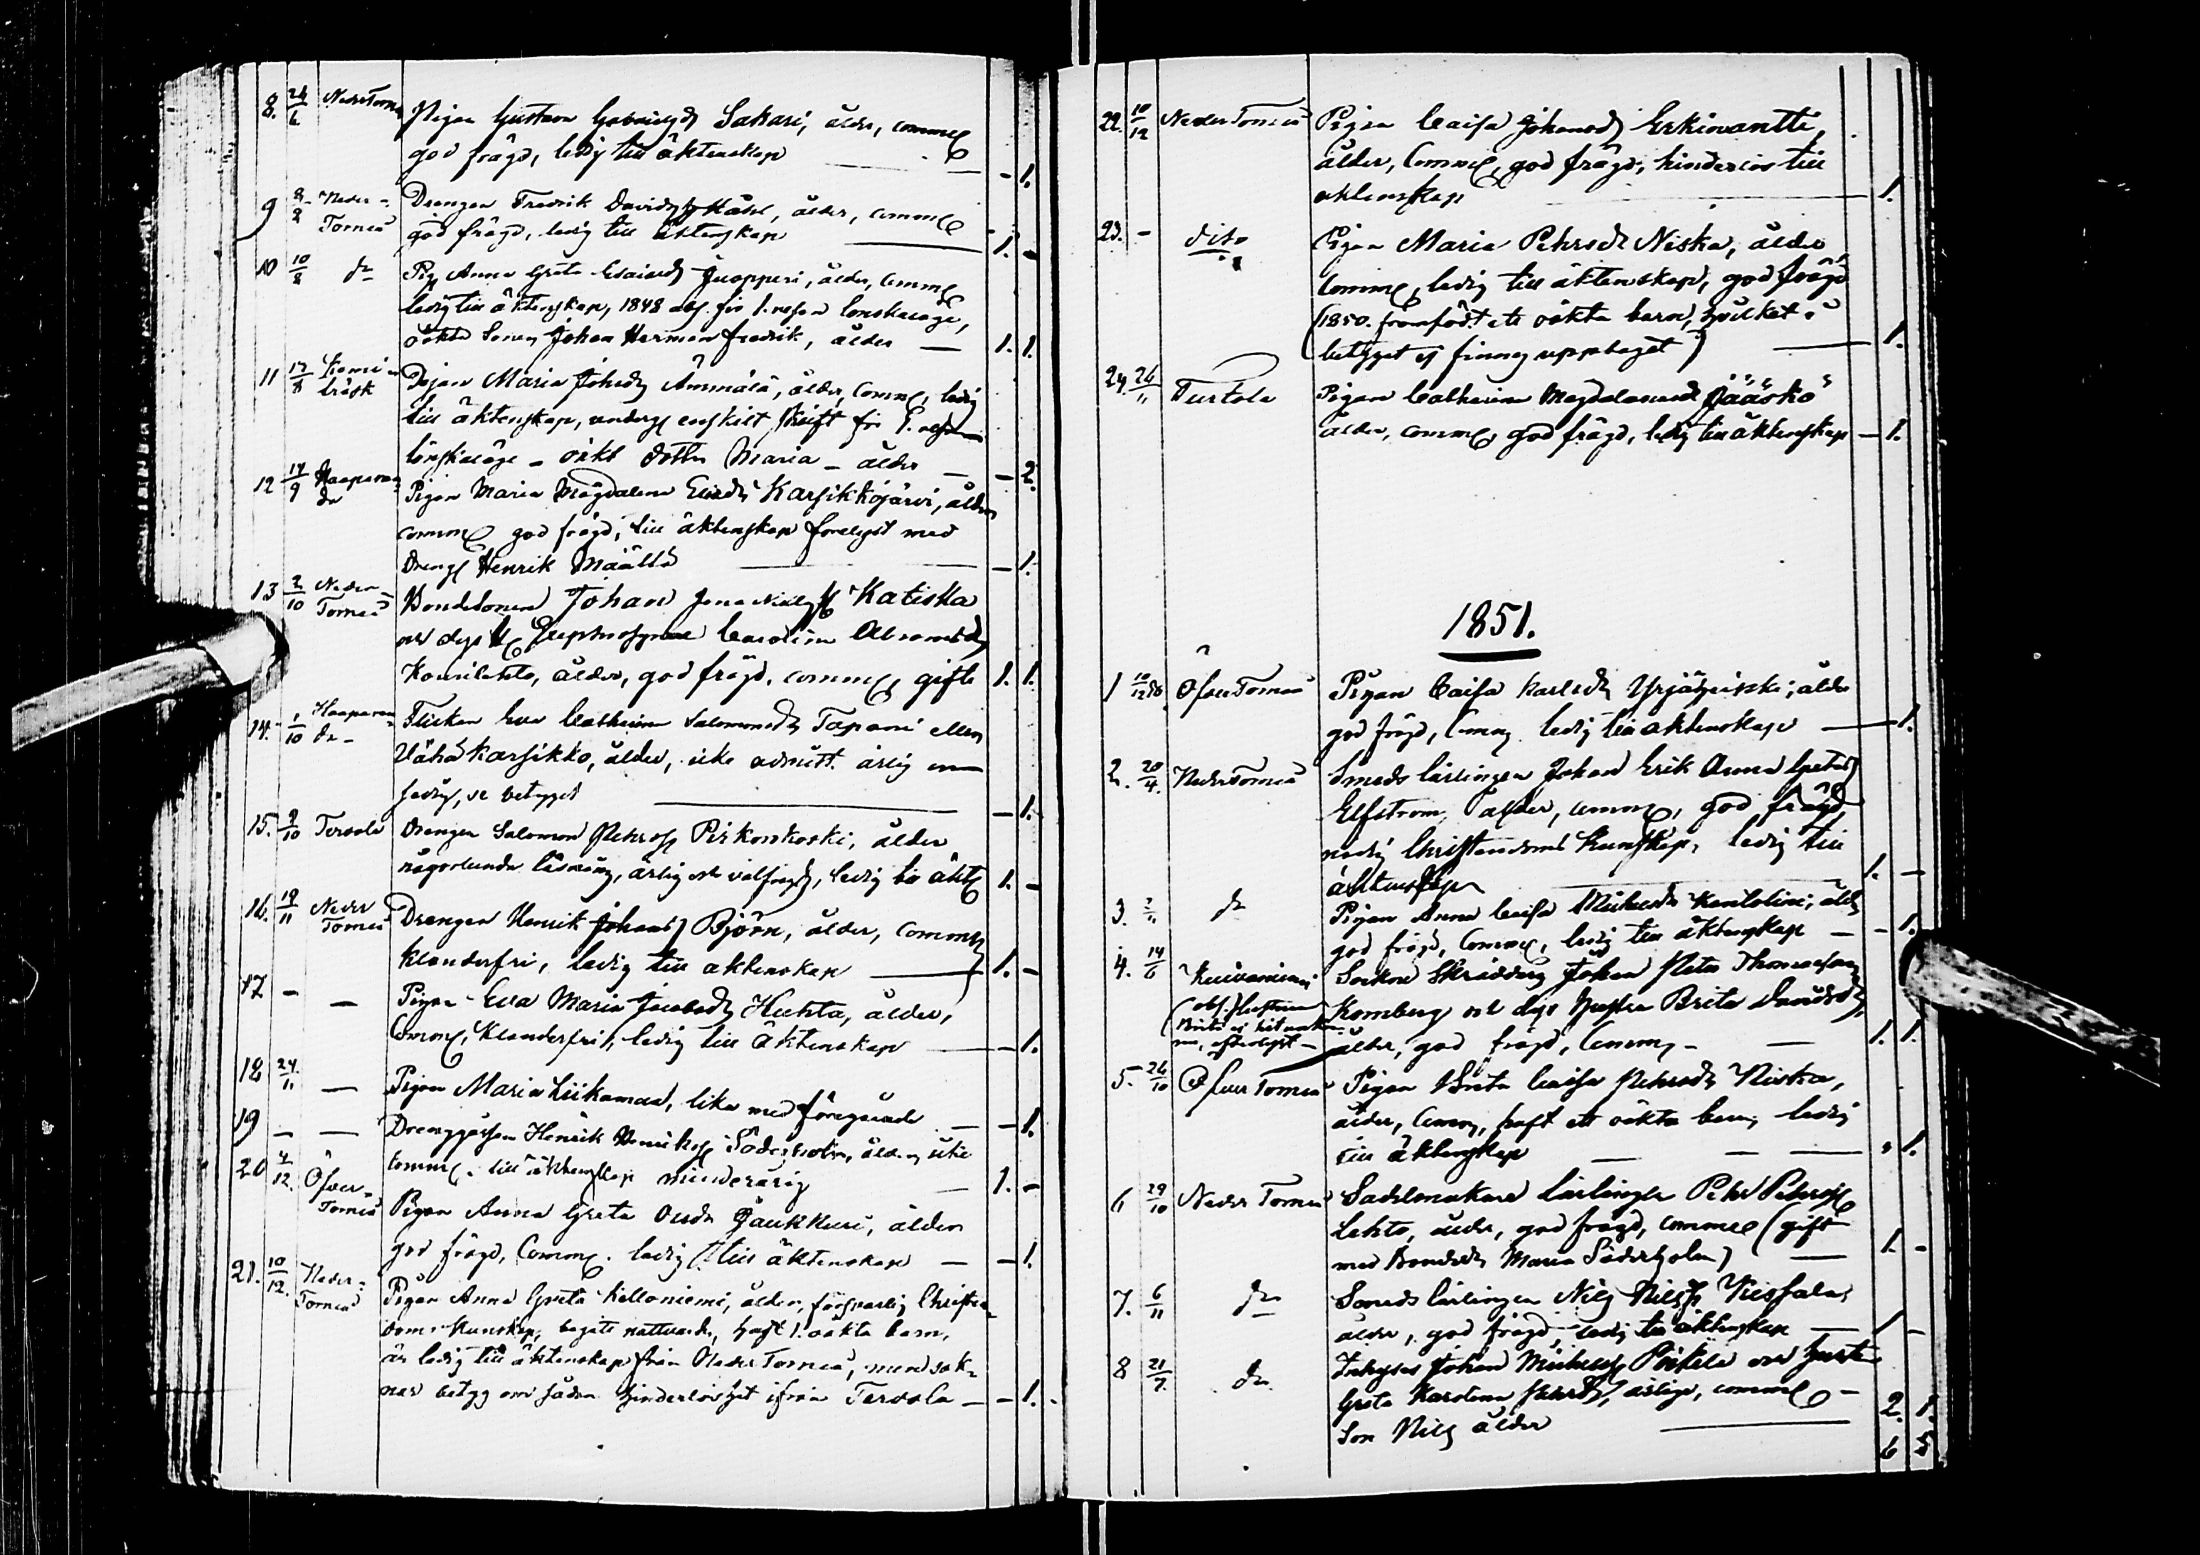 8. 26/6 Neder Torneå Pigan Gustava Gabrielsd. Sakari, ålder, comme
god frägd, ledig till äktenskap — 1.
9 8/8 Neder- Drengen Fredrik Davids, ålder, comme
Torneå god frägd, ledig till äktenskap — 1. -
10 10/8 do Pig. Anna Greta Esaiasd Juopperi, ålder, comme
ledig till äktenskap, 1848 abs. för 1. resan lönskaläge,
oäkta Sonen Johan Herman Fredrik, ålder — 1. 1.
11 17/8 Kemi- Pigan Maria Johsd Ämmälä, ålder, comme, ledig
träsk till äktenskap, enskilt skrift för 1. resan
lönskaläge - oäkt dotter Maria - ålder — 2.
12 14/9 Haaparan- Pigan Maria Magdalena Karsikkojärvi, ålder
da comme god frägd, till äktenskap förelyst med
Dreng Henrik Määttä — 1.
13 2/10 Neder- Bondesonen Johan Katiska
Torneå och dess Carolina Abramsd
ålder, god frägd, comme, gifte 1. 1.
14. 1/10 Haaparan- Flickan Eva Catharina Salomonsd Tapani eller
da - Vähä Karsikko, ålder, icke admitt. ärlig
ledig, se betyget — 1.
15. 9/10 Tervola Drengen Salomon Pehrss Pirkonkoski, ålder
någorlunda läsning, ärlig och välfrägd, ledig till äkt 1. -
16. 19/11 Neder Drengen Henrik Johans Björn, ålder, comme
Torneå klanderfri, ledig till äktenskap — 1. -
17 - - Pigan Eva Maria Jacobsd Huhta, ålder,
Comme, klanderfri, ledig till äktenskap — 1.
18 24/11 — Pigan Maria Liikamaa, lika med föregående — 1.
19 - — Drenggossen Henrik Henrikss Söderholm, ålder, icke
comme. till äktenskap minderårig — 1. -
20 4/12. Öfver- Pigan Anna Greta Olsd Jaukkuri, ålder
Torneå god frägd, Comme. ledig till äktenskap — 1.
21. 10/12. Neder- Pigan Anna Greta Kelloniemi, ålder, försvarlig Christen-
Torneå doms Kunskap, begått nattvard, haft 1. oäkta barn,
är ledig till äktenskap från Neder Torneå, men sak-
nar betyg om sådan hinderlöshet ifrån Tervola — 1.
22. 10/12 Neder Torneå Pigan Caisa Johansd Erkinantti,
ålder, Comme, god frägd, hinderlös till
äktenskap — 1.
23. - dito Pigan Maria Pehrsd Niska, ålder
Comme, ledig till äktenskap, god frägd
(1850. framfödt ett oäkta barn, hvilket i
betyget ej finnes upptaget) — 1.
24. 26/11 Turtola Pigan Catharina Magdalena Jääskö
ålder, comme, god frägd, ledig till äktenskap — 1.
1851.
1 10/12 50 Öfver Torneå Pigan Caisa Karlsd Yrjänheikki, ålder
god frägd, Comme ledig till äktenskap — 1.
2. 20/4. Neder Torneå Smeds lärlingen Johan Erik Anna Gretas
Elfström, ålder, comme, god frägd
nödig Christendoms Kunskap, ledig till
äktenskap — 1. -
3. do Pigan Anna Caisa Michelsd Kantolini, ålder
god frägd, Comme, ledig till äktenskap — 1.
4. 14/6 Kuivaniemi Socken Skräddaren Johan Peter Thomasson
(obs. hustrun Komberg och dess hustru Brita Davidsd,
Brita ej ålder, god frägd, Comme - — 1. 1.
5. 26/10 Öfver Torneå Pigan Brita Caisa Pehrsd Niska,
ålder, Comme, haft ett oäkta barn, ledig
till äktenskap — 1.
6 29/10 Neder Torneå Sadelmakare lärlingen Pehr Pehrss
Lehto, ålder, god frägd, comme (gift
med Maria Söderholm) — 1. -
7. 6/11 do Smeds lärlingen Nils Nilss
ålder, god frägd, ledig till äktenskap — 1 -
8 21/7. do Inhyses Johan Michelss och hustru
Greta Karolina Pehrsd, ärlige, comme -
Son Nils ålder — 2. 1.
6 5